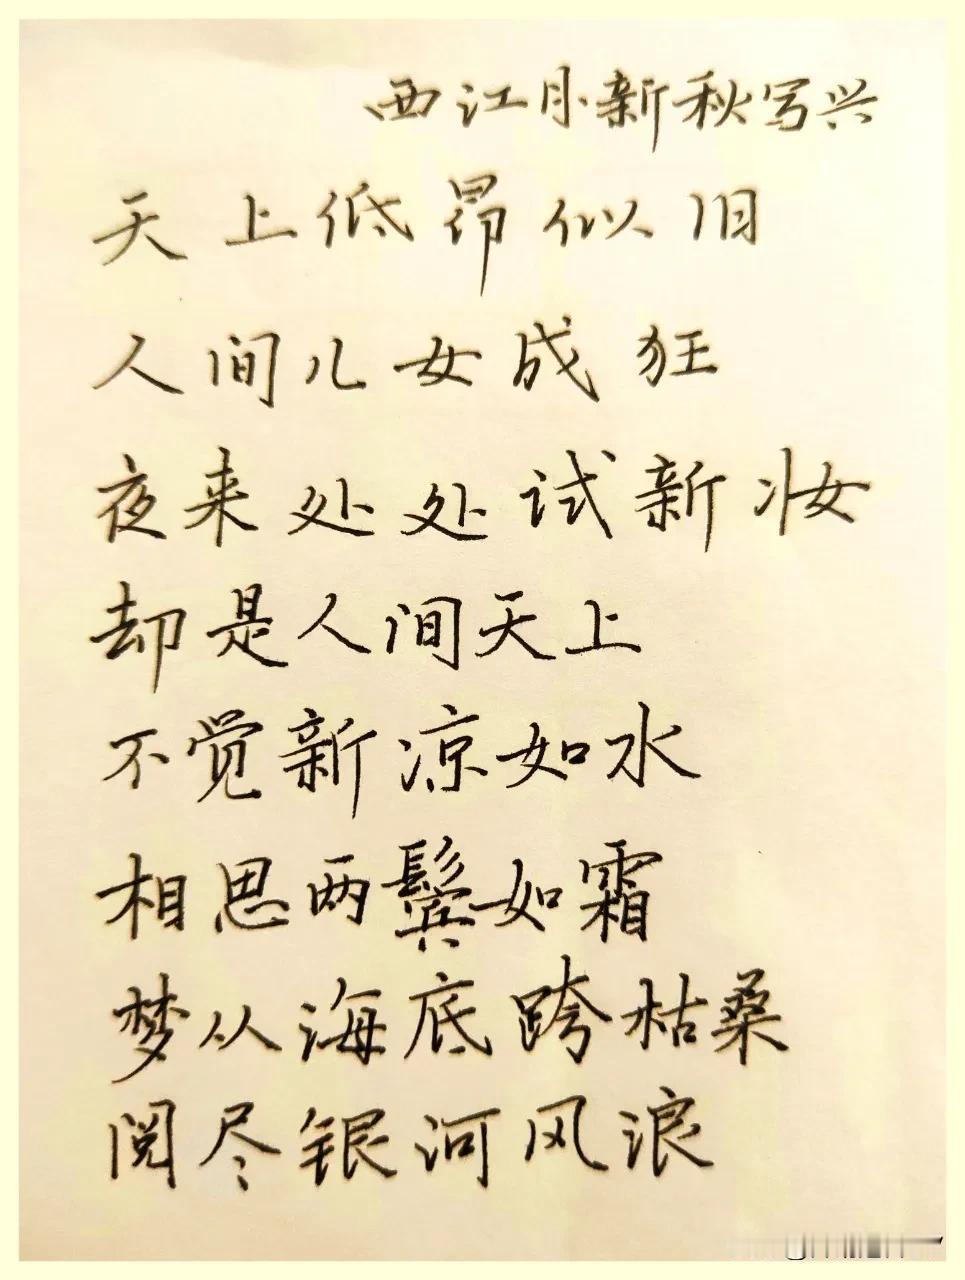 西江月新秋写兴
天上低昂似旧
人间儿女成狂
夜来处处试新妆
却是人间天上
不觉新凉如水
相思两鬓如霜
梦从海底跨枯桑
阅尽银河风浪